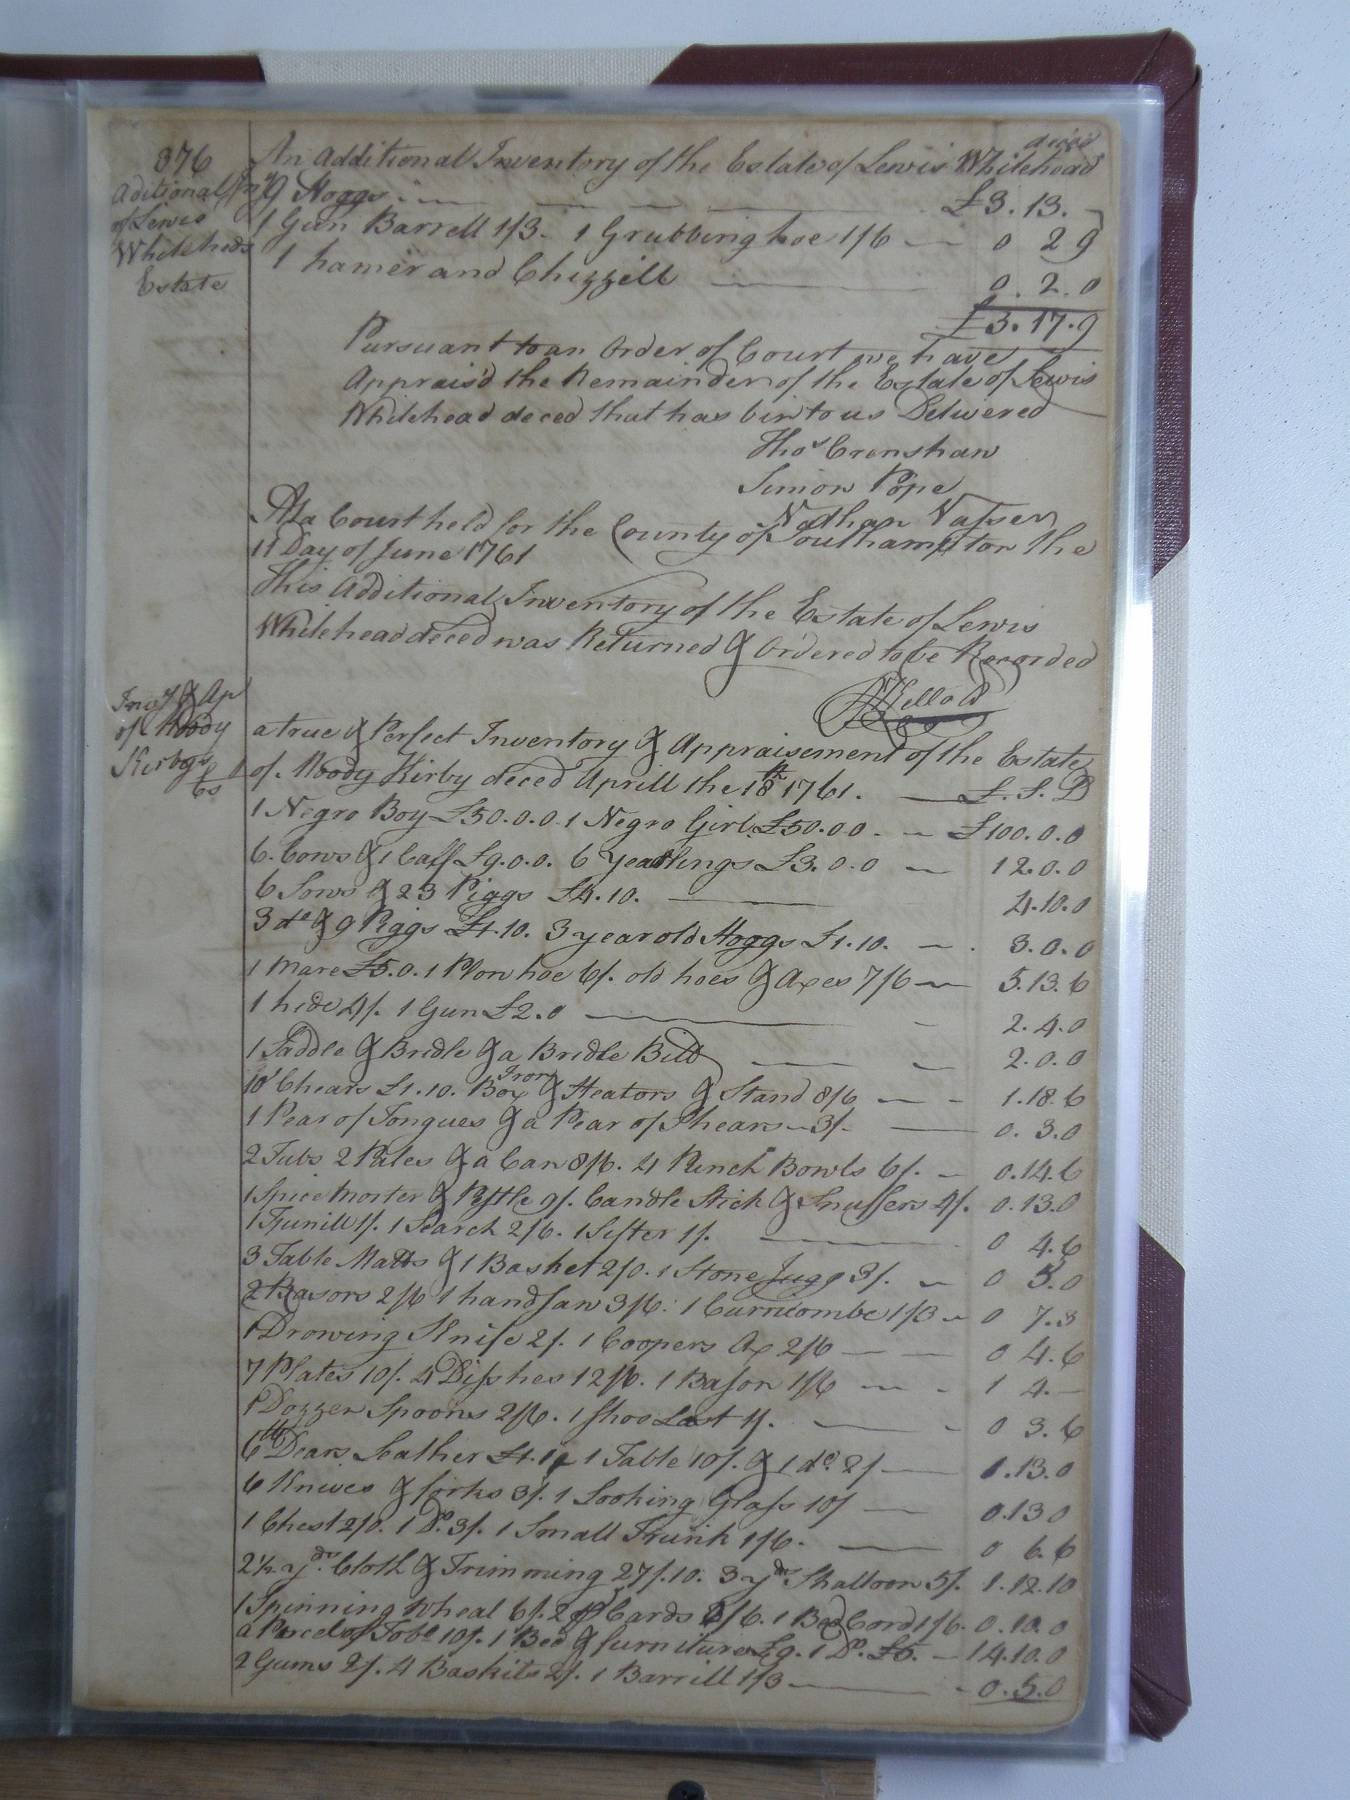 376
Aditional Invy
of Lewis
Whiteheds
Estate
An Additional Inventory of the Estate of Lewis Whitehead deced
9 Hoggs £3.13.
1 Gun Barrell 1/3. 1 Grubbing hoe 1/6 0 2 9
1 hamer and Chizzill 0. 2. 0
£3.17.9
Pursuant to an Order of Court we have
Apprais'd the Remainder of the Estate of Lewis
Whitehead deced that has bin to us Delivered
Thos Crenshaw
Simon Pope
Nathan Vasser
At a Court held for the County of Southampton the
11 Day of June 1761
This Additional Inventory of the Estate of Lewis
Whitehead deced was Returned & Ordered to be Recorded
Invy & Ap
of Moody
Kirbys
Es
a true & Perfect Inventory & Appraisement of the Estate
of Moody Kirby deced Aprill the 18th 1761. £. S. D
1 Negro Boy £50.0.0. 1 Negro Girl £50.0.0. £100.0.0
6. Cows & 1 Calf £9.0.0. 6 yearlings £3.0.0 12.0.0
6 Sows & 23 Piggs £4.10. 4.10.0
3 do & 9 Piggs £1.10. 3 year old Hoggs £1.10. 3.0.0
1 Mare £5.0. 1 Plow hoe 6/. old hoes & Axes 7/6 5.13.6
1 hide 4/. 1 Gun £2.0 2.4.0
1 Saddle & Bridle & a Bridle Bitt 2.0.0
10 Chears £1.10. Box Iron & Heators & Stand 8/6 1.18.6
1 Pear of Tongues & a Pear of Shears 3/. 0. 3.0
2 Tubs 2 Pales & a Can 8/6. 4 Punch Bowls 6/. 0.14.6
1 Spice Morter & Pestle 9/. Candle Stick & Snuffers 4/. 0.13.0
1 Funill 1/. 1 Search 2/6. 1 Sifter 1/. 0 4.6
3 Table Matts & 1 Basket 2/0. 1 Stone Jugg 3/. 0 5.0
2 Rasors 2/6 1 hand Saw 3/6. 1 Curricombe 1/3 0 7.3
1 Drowing Knife 2/. 1 Coopers Ax 2/6 0 4.6
7 Plates 10/. 4 Disshes 12/6. 1 Bason 1/6 1 4.—
1 Dozzen Spoons 2/6. 1 Shoo Last 1/. 0 3.6
6 Dears Leather 1 Table 10/. & 1 do. 2/ 1.13.0
6 Knives & forks 3/. 1 Looking Glass 10/ 0.13 0
1 Chest 2/0. 1 Do. 3/. 1 Small Trunk 1/6. 0 6.6
2½ yds. Cloth & Trimming 27/.10. 3 yds Shalloon 5/. 1.12.10
1 Spinning Wheal 6/. 2 Cards 1 Bed Cord 1/6. 0.10.0
a Parcel of Tobo 10/. 1 Bed & furniture £9. 1 Do. £5. 14.10.0
2 Gums 2/. 4 Baskits 2/. 1 Barrill 1/3 0.5.0